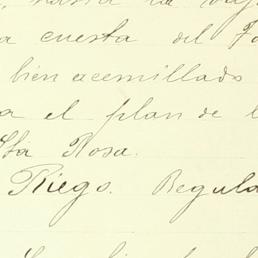 hasta la
a cuesta del
bien acemillado
a el plan de l
Sta Rosa.
Riego. Regula